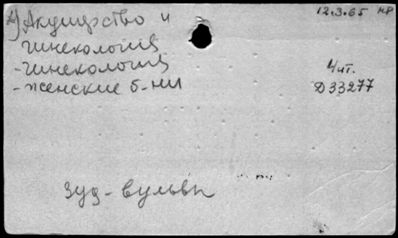 Акушерство и
12.3.65 нр
гинекология
- гинекология
Чит.
- женские б-ни
Д33277
Зуд - вульвы